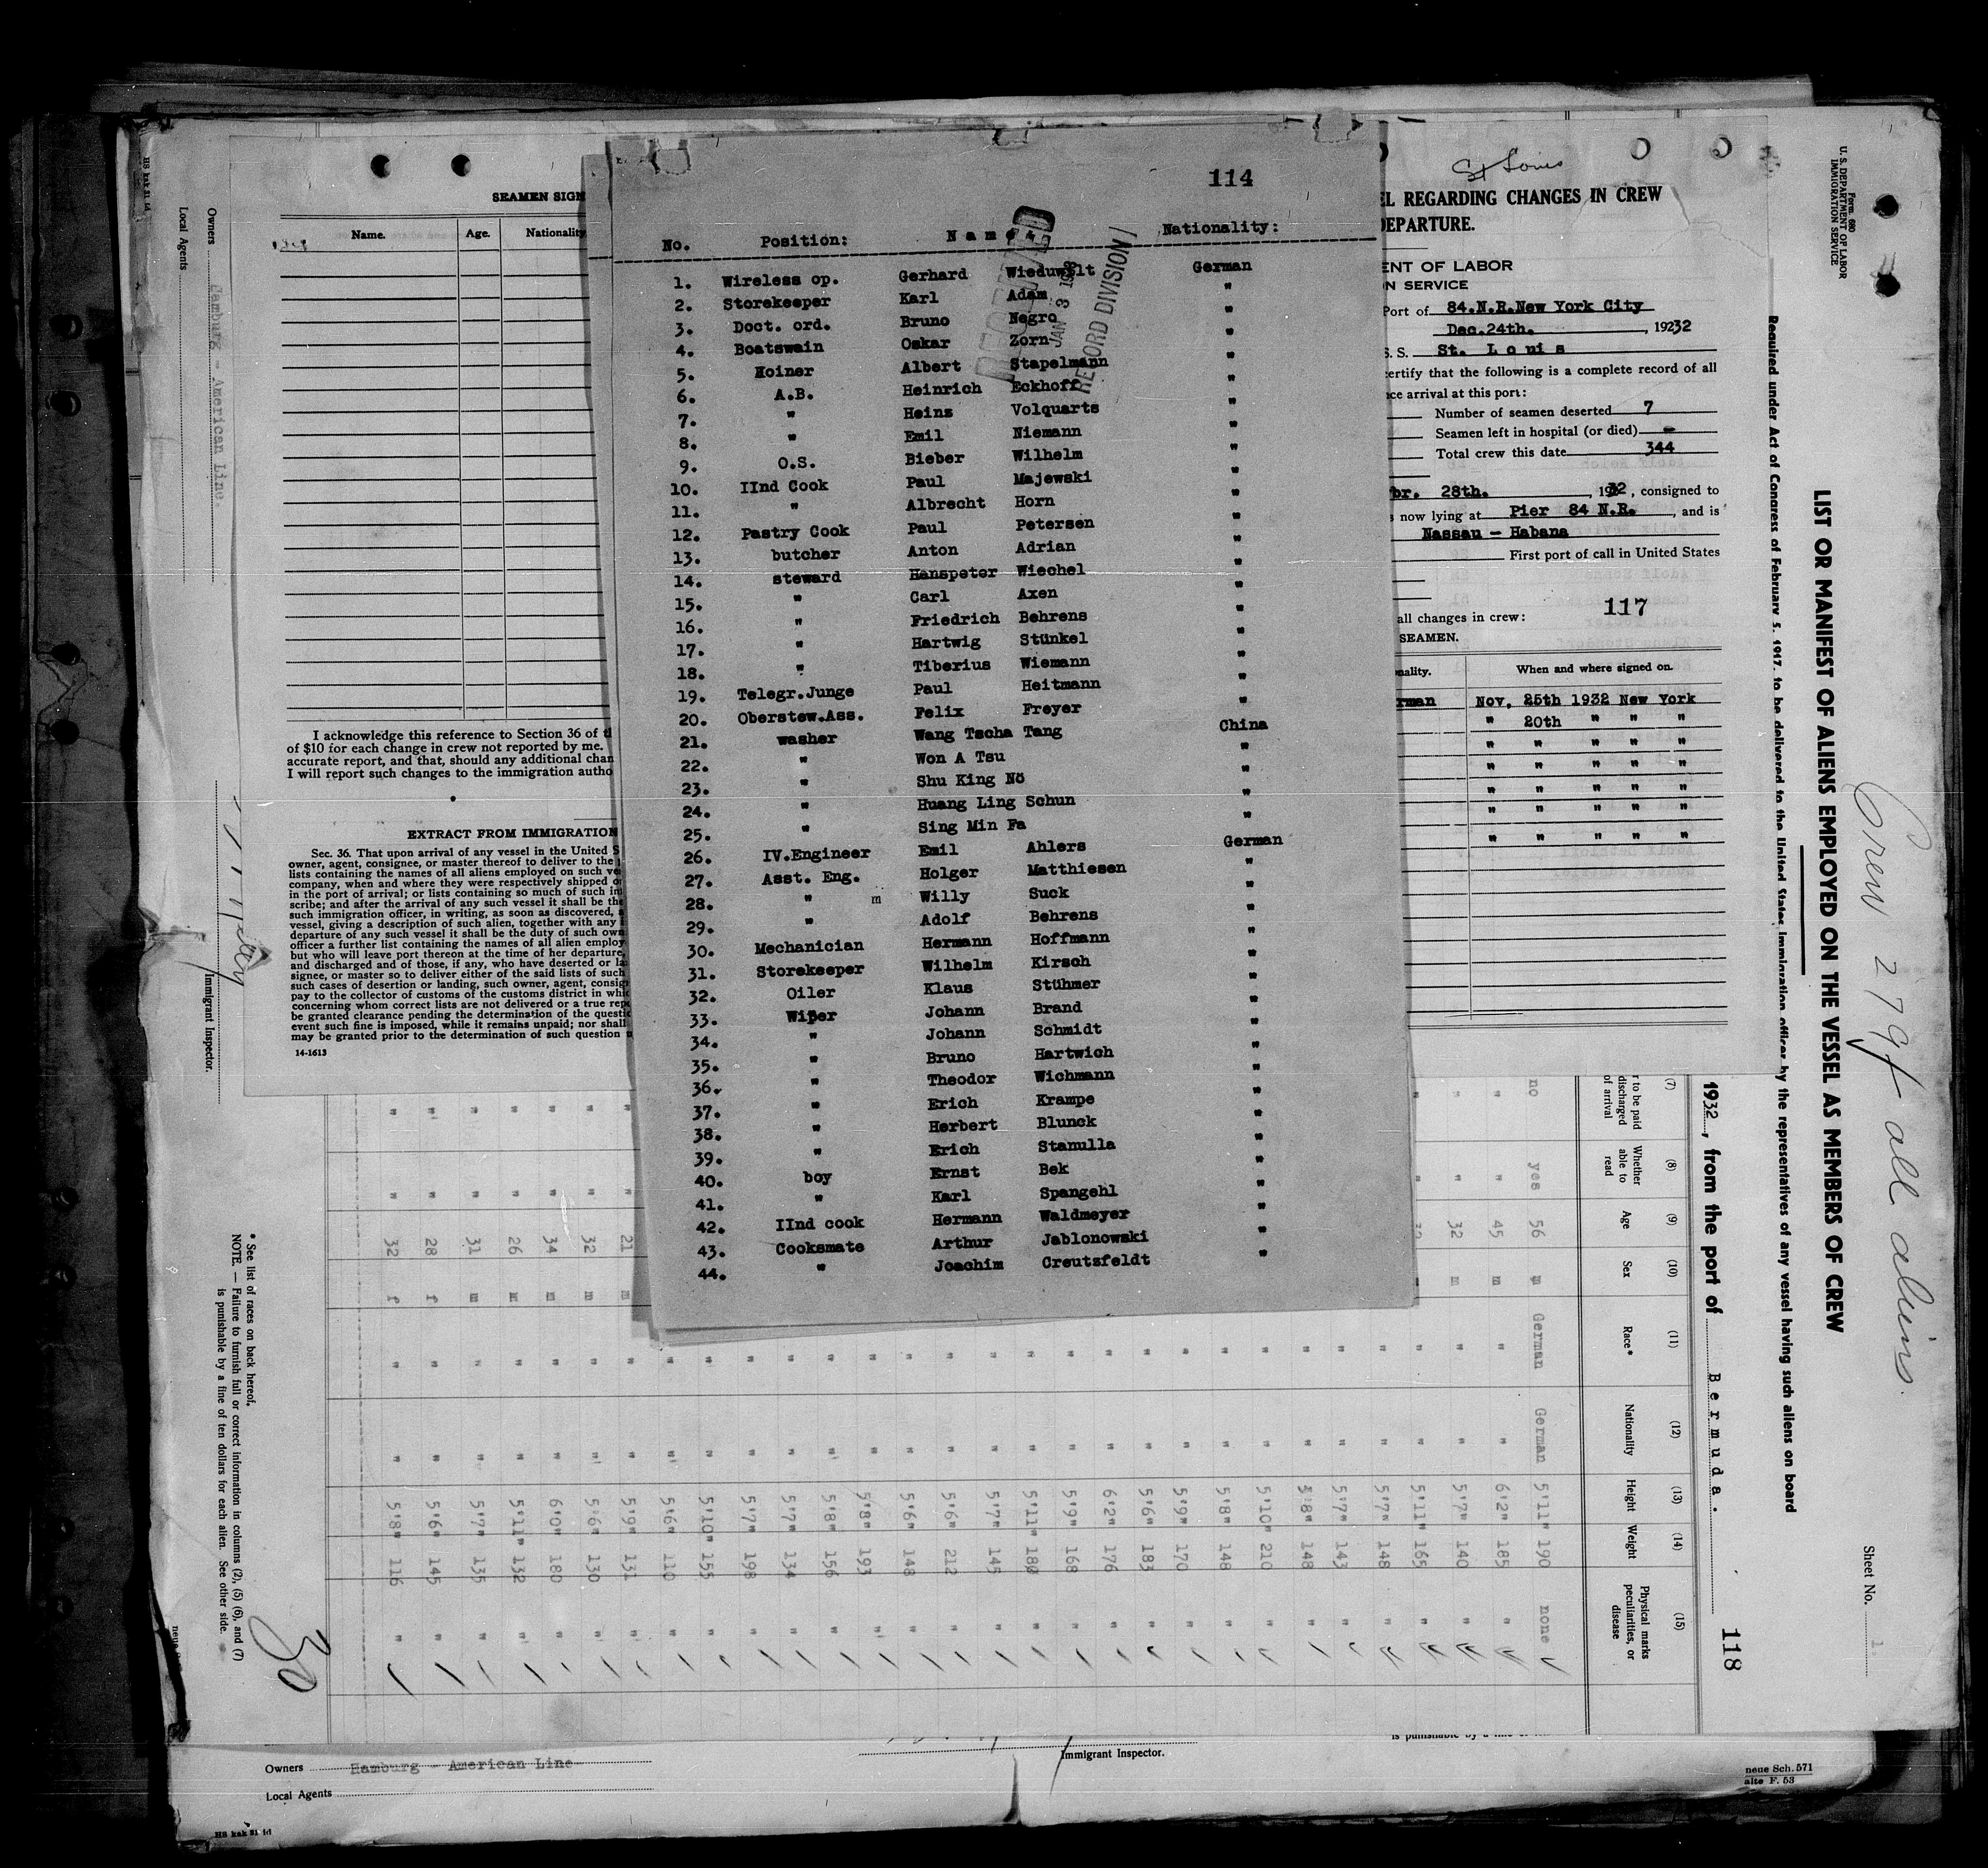 114
No. Position: N a m e : Nationality:
1. Wireless op. Gerhard Wieduwilt German
2. Storekeeper Karl Adam "
3. Doct. ord. Bruno Negro "
4. Boatswain Oskar Zorn "
5. Koiner Albert Stapelmann "
6. A.B. Heinrich Eckhoff "
7. " Heinz Volquarts "
8. " Emil Niemann "
9. O.S. Bieber Wilhelm "
10. IInd Cook Paul Majewski "
11. " Albrecht Horn "
12. Pastry Cook Paul Petersen "
13. butcher Anton Adrian "
14. steward Hanspeter Wiechel "
15. " Carl Axen "
16. " Friedrich Behrens "
17. " Hartwig Stünkel "
18. " Tiberius Wiemann "
19. Telegr.Junge Paul Heitmann "
20. Oberstew.Ass. Felix Freyer "
21. washer Wang Tscha Tang China
22. " Won A Tsu "
23. " Shu King Nö "
24. " Huang Ling Schun "
25. " Sing Min Fa "
26. IV.Engineer Emil Ahlers German
27. Asst. Eng. Holger Matthiesen "
28. " m Willy Suck "
29. " Adolf Behrens "
30. Mechanician Hermann Hoffmann "
31. Storekeeper Wilhelm Kirsch "
32. Oiler Klaus Stühmer "
33. Wiper Johann Brand "
34. " Johann Schmidt "
35. " Bruno Hartwich "
36. " Theodor Wichmann "
37. " Erich Krampe "
38. " Herbert Blunck "
39. " Erich Stamulla "
40. boy Ernst Bek "
41. " Karl Spangehl "
42. IInd cook Hermann Waldmeyer "
43. Cooksmate Arthur Jablonowski "
44. " Joachim Creutzfeldt "
RECORD DIVISION
SEAMEN SIGN
Name. Age. Nationality
I acknowledge this reference to Section 36 of
of $10 for each change in crew not reported by me.
accurate report, and that, should any additional chan
I will report such changes to the immigration autho
EXTRACT FROM IMMIGRATION
Sec. 36. That upon arrival of any vessel in the United S
owner, agent, consignee, or master thereof to deliver to the
lists containing the names of all aliens employed on such ve
company, when and where they were respectively shipped o
in the port of arrival; or lists containing so much of such in
scribe; and after the arrival of any such vessel it shall be the
such immigration officer, in writing, as soon as discovered,
vessel, giving a description of such alien, together with any
departure of any such vessel it shall be the duty of such own
officer a further list containing the names of all alien employ
but who will leave port thereon at the time of her departure,
and discharged and of those, if any, who have deserted or la
signee, or master so to deliver either of the said lists of such
such cases of desertion or landing, such owner, agent, consig
pay to the collector of customs of the customs district in whic
concerning whom correct lists are not delivered or a true repo
be granted clearance pending the determination of the questi
event such fine is imposed, while it remains unpaid; nor shall
may be granted prior to the determination of such question
14-1613
St Louis
EL REGARDING CHANGES IN CREW
DEPARTURE.
ENT OF LABOR
ON SERVICE
Port of 84.N.R.New York City
Dec.24th. , 19232
S. S. St. L o u i s
certify that the following is a complete record of all
ce arrival at this port:
Number of seamen deserted 7
Seamen left in hospital (or died) -
Total crew this date 344
br. 28th. , 1932, consigned to
now lying at Pier 84 N.R. , and is
Nassau - Habana
First port of call in United States
117
all changes in crew:
SEAMEN.
nality. When and where signed on.
rman Nov, 25th 1932 New York
" 20th " " "
" " " " "
" " " " "
" " " " "
" " " " "
" " " " "
Form 680
U. S. DEPARTMENT OF LABOR
IMMIGRATION SERVICE
Sheet No. 1
Crew 279 all aliens.
LIST OR MANIFEST OF ALIENS EMPLOYED ON THE VESSEL AS MEMBERS OF CREW
Required under Act of Congress of February 5, 1917, to be delivered to the United States immigration officer by the representatives of any vessel having such aliens on board
1932, from the port of B e r m u d a .
118
(7) (8) (9) (10) (11) (12) (13) (14) (15)
r to be paid discharged of arrival
Whether able to read
Age
Sex
Race*
Nationality
Height
Weight
Physical marks peculiarities, or disease
no yes 56 m German German 5'11" 190 none
" " 45 m " " 6'2" 185 "
" " 32 m " " 5'7" 140 "
" " 5'11" 165 "
" " 5'7" 148 "
" " 5'7" 143 "
" " 5'8" 148 "
" " 5'10" 210 "
" " 5'8" 148 "
" " 5'9" 170 "
" " 5'6" 183 "
" " 6'2" 176 "
" " 5'9" 168 "
" " 5'11" 180 "
" " 5'7" 145 "
" " 5'6" 212 "
" " 5'6" 148 "
" " 5'8" 193 "
" " 5'8" 156 "
" " 5'7" 134 "
" " 5'7" 198 "
" " 5'10" 155 "
" " 5'6" 110 "
21 m " " 5'9" 131 "
32 m " " 5'6" 130 "
34 m " " 6'0" 180 "
" " 26 m " " 5'11" 132 "
" " 31 m " " 5'7" 135 "
" " 28 f " " 5'6" 145 "
" " 32 f " " 5'8" 116 "
30
* See list of races on back hereof.
NOTE. — Failure to furnish full or correct information in columns (2), (5) (6), and (7)
is punishable by a fine of ten dollars for each alien. See other side.
Owners Hamburg - American Line.
Local Agents
Immigrant Inspector.
HS kak 31 td
Owners Hamburg - American Line
Local Agents
Immigrant Inspector.
neue Sch. 571
alte F. 53
HS kak 31 td